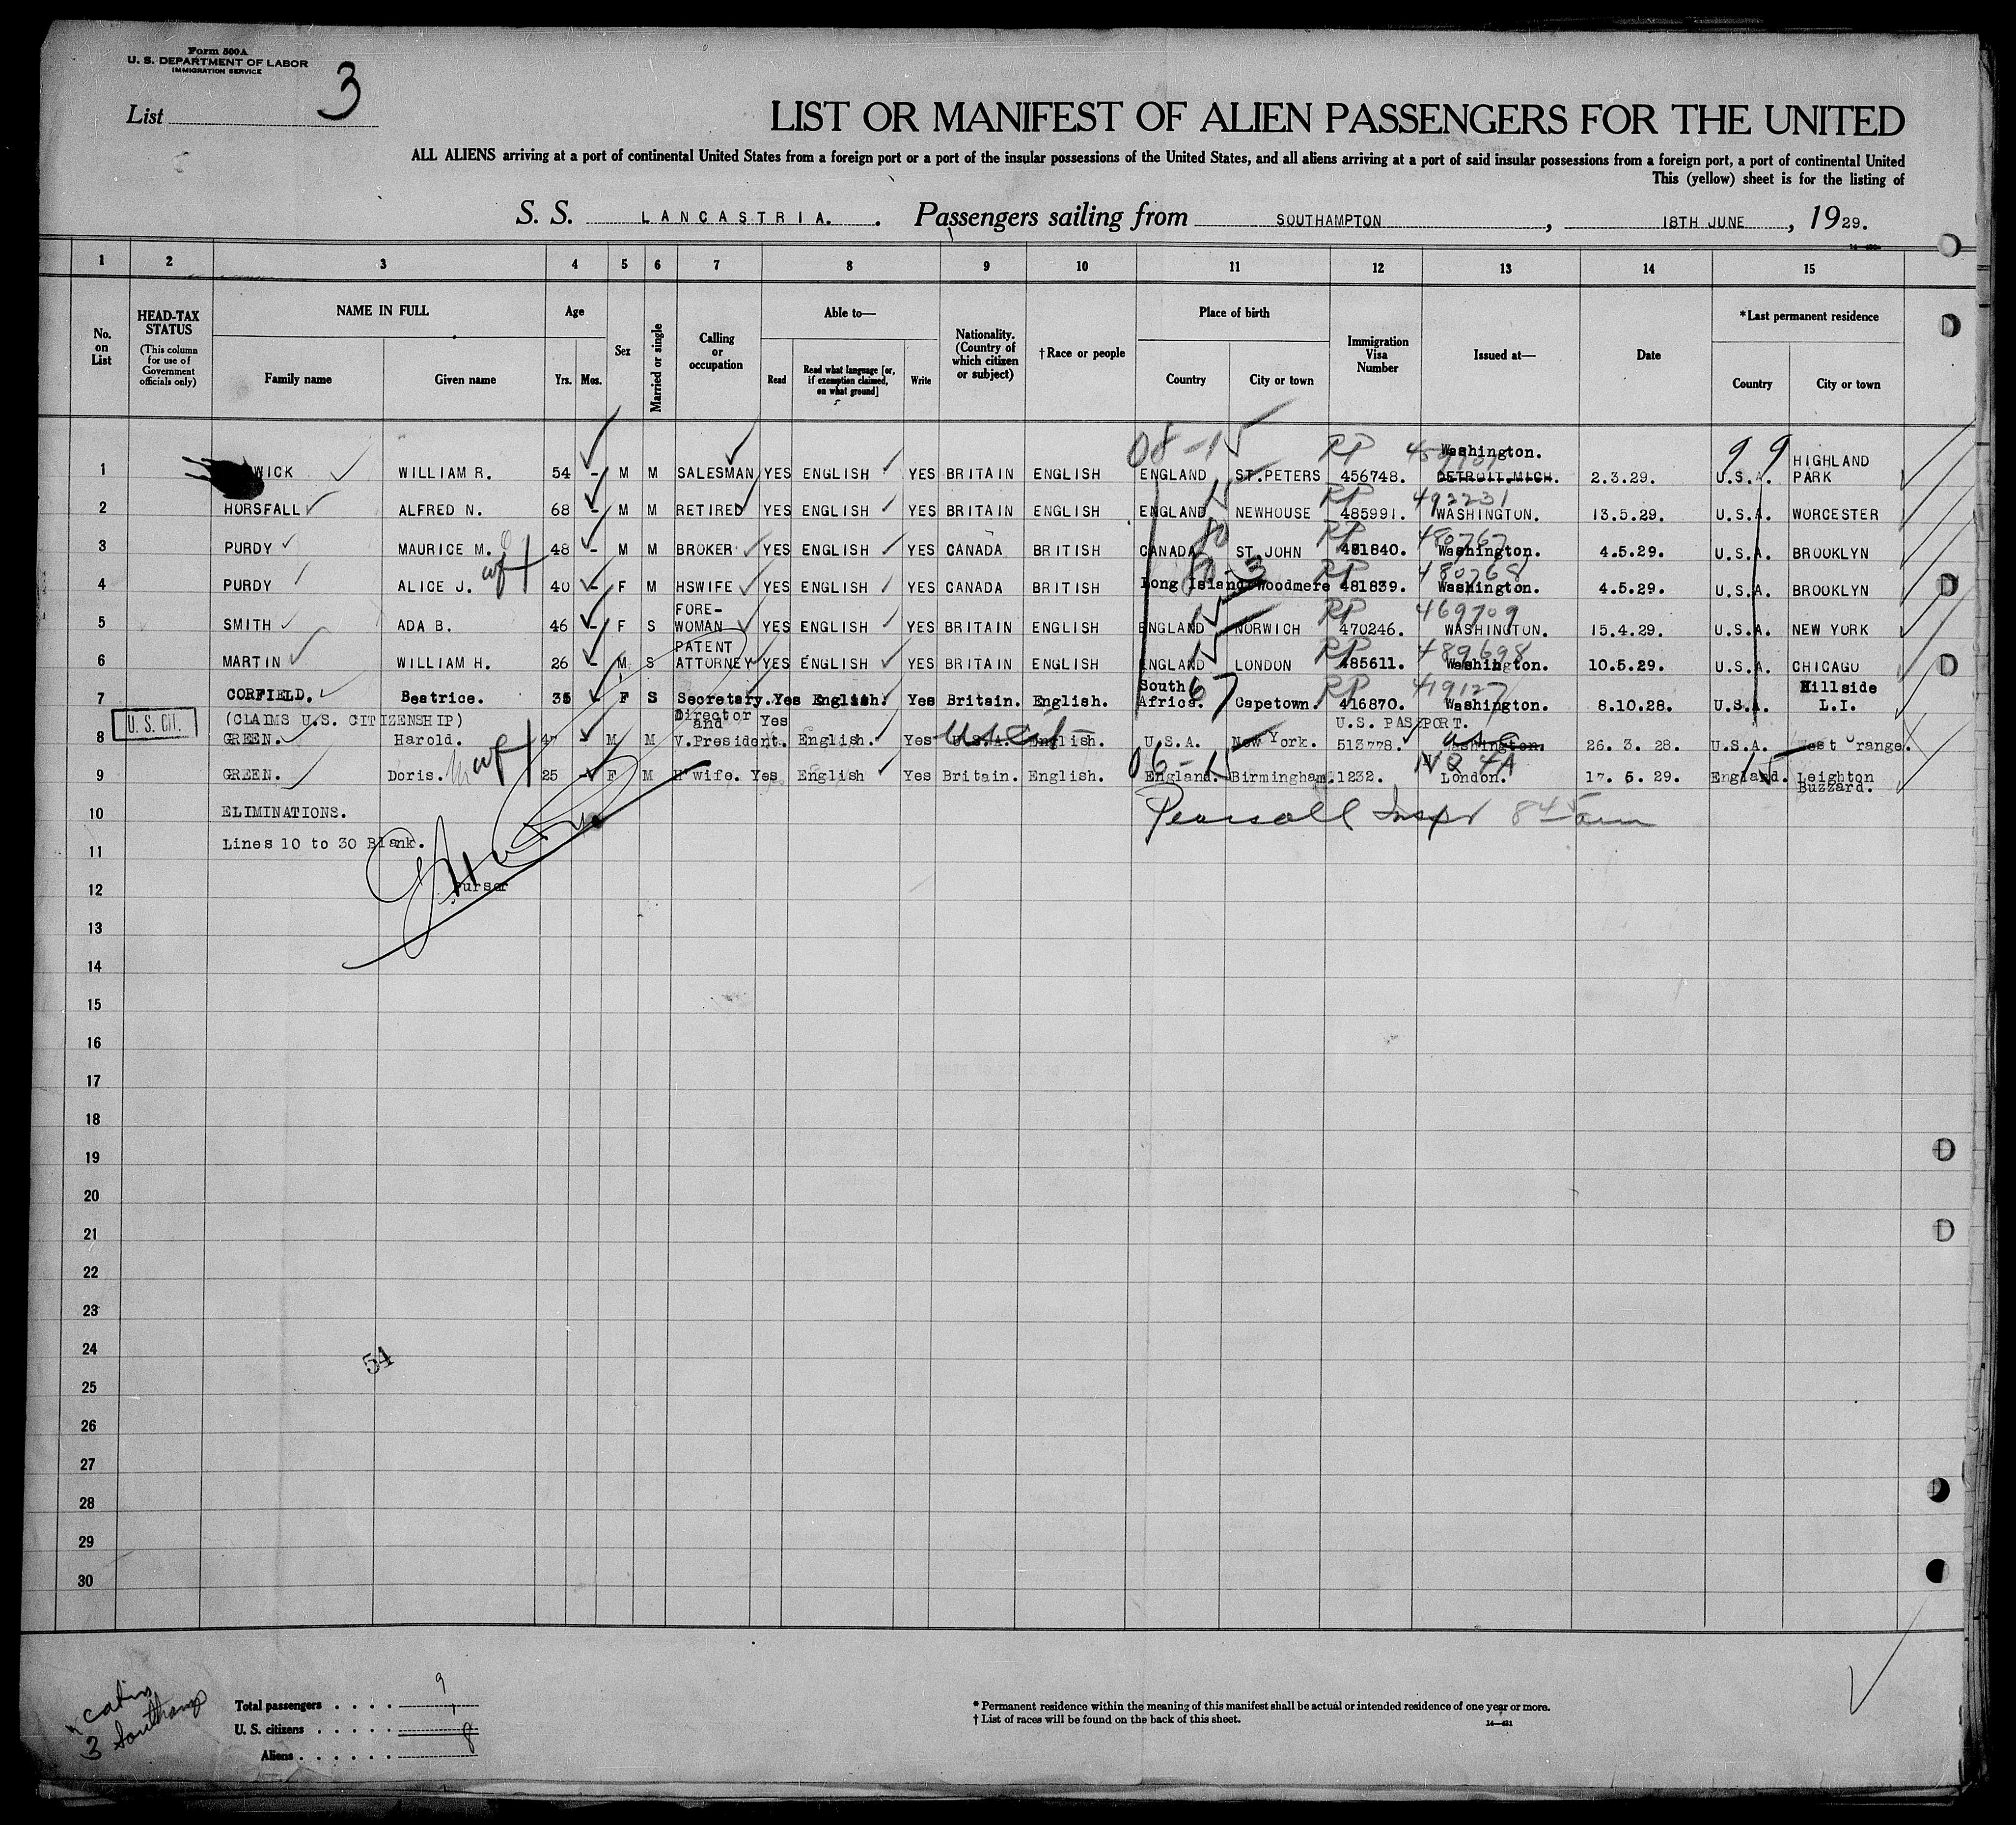 Form 500 A
U. S. DEPARTMENT OF LABOR
IMMIGRATION SERVICE
List 3
LIST OR MANIFEST OF ALIEN PASSENGERS FOR THE UNITED
ALL ALIENS arriving at a port of continental United States from a foreign port or a port of the insular possessions of the United States, and all aliens arriving at a port of said insular possessions from a foreign port, a port of continental United
This (yellow) sheet is for the listing of
S. S. LANCASTRIA. Passengers sailing from SOUTHAMPTON, 18TH JUNE, 1929.
1 2 3 4 5 6 7 8 9 10 11 12 13 14 15
No. on List
HEAD-TAX STATUS (This column for use of Government officials only)
NAME IN FULL Family name Given name
Age Yrs. Mos.
Sex
Married or single
Calling or occupation
Able to— Read Read what language [or, if exemption claimed, on what ground] Write
Nationality. (Country of which citizen or subject)
† Race or people
Place of birth Country City or town
Immigration Visa Number
Issued at—
Date
*Last permanent residence Country City or town
08-15 RP Washington. 99
1 WICK WILLIAM R. 54 - M M SALESMAN YES ENGLISH YES BRITAIN ENGLISH ENGLAND ST.PETERS 456748. DETROIT.MICH. 2.3.29. U.S.A. HIGHLAND PARK
15 RP 492231
2 HORSFALL ALFRED N. 68 - M M RETIRED YES ENGLISH YES BRITAIN ENGLISH ENGLAND NEWHOUSE 485991. WASHINGTON. 13.5.29. U.S.A. WORCESTER
80 RP 480767
3 PURDY MAURICE M. 48 - M M BROKER YES ENGLISH YES CANADA BRITISH CANADA ST.JOHN 481840. Washington. 4.5.29. U.S.A. BROOKLYN
wf RP 480768
4 PURDY ALICE J. 40 - F M HSWIFE YES ENGLISH YES CANADA BRITISH Long Island Woodmere 481839. Washington. 4.5.29. U.S.A. BROOKLYN
15 RP 469709
5 SMITH ADA B. 46 - F S FORE-WOMAN YES ENGLISH YES BRITAIN ENGLISH ENGLAND NORWICH 470246. WASHINGTON. 15.4.29. U.S.A. NEW YORK
15 RP 489698
6 MARTIN WILLIAM H. 26 - M S PATENT ATTORNEY YES ENGLISH YES BRITAIN ENGLISH ENGLAND LONDON 485611. Washington. 10.5.29. U.S.A. CHICAGO
67 RP 419127
7 CORFIELD. Beatrice. 35 - F S Secretary. Yes English. Yes Britain. English. South Africa. Capetown. 416870. Washington. 8.10.28. U.S.A. Hillside L.I.
U. S. CIT. (CLAIMS U.S. CITIZENSHIP) U.S. PASSPORT.
8 GREEN. Harold. 47 - M M Director and V.President. Yes English. Yes U.S.A. English. U.S.A. New York. 513778. Washington. 26. 3. 28. U.S.A. West Orange.
wf 06-15 NQ 4A 15
9 GREEN. Doris. 25 - F M H'wife. Yes English Yes Britain. English. England. Birmingham. 1232. London. 17. 5. 29. England. Leighton Buzzard.
10 ELIMINATIONS.
Pearsall Inspr 845am
11 Lines 10 to 30 Blank.
12 Purser
13
14
15
16
17
18
19
20
21
22
23
24
54
25
26
27
28
29
30
cabin
3 Southamp
Total passengers . . . . 9
U. S. citizens . . . . . 1
Aliens . . . . . . 8
* Permanent residence within the meaning of this manifest shall be actual or intended residence of one year or more.
† List of races will be found on the back of this sheet.